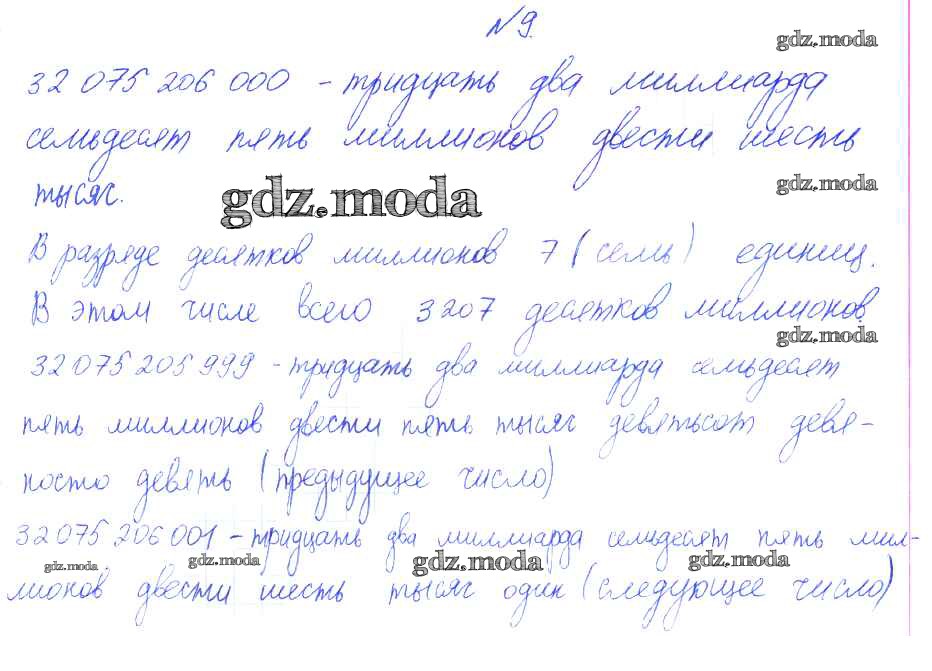 №9.
gdz.moda
32 075 206 000 - тридцать два миллиарда
семьдесят пять миллионов двести шесть
gdz.moda
тысяч.
gdz.moda
В разряде десятков миллионов 7 (семь) единиц.
В этом числе всего 3207 десятков миллионов.
gdz.moda
32 075 205 999 - тридцать два миллиарда семьдесят
пять миллионов двести пять тысяч девятьсот девя-
носто девять (предыдущее число)
32 075 206 001 - тридцать два миллиарда семьдесят пять мил-
gdz.moda gdz.moda gdz.moda gdz.moda
лионов двести шесть тысяч один (следующее число)